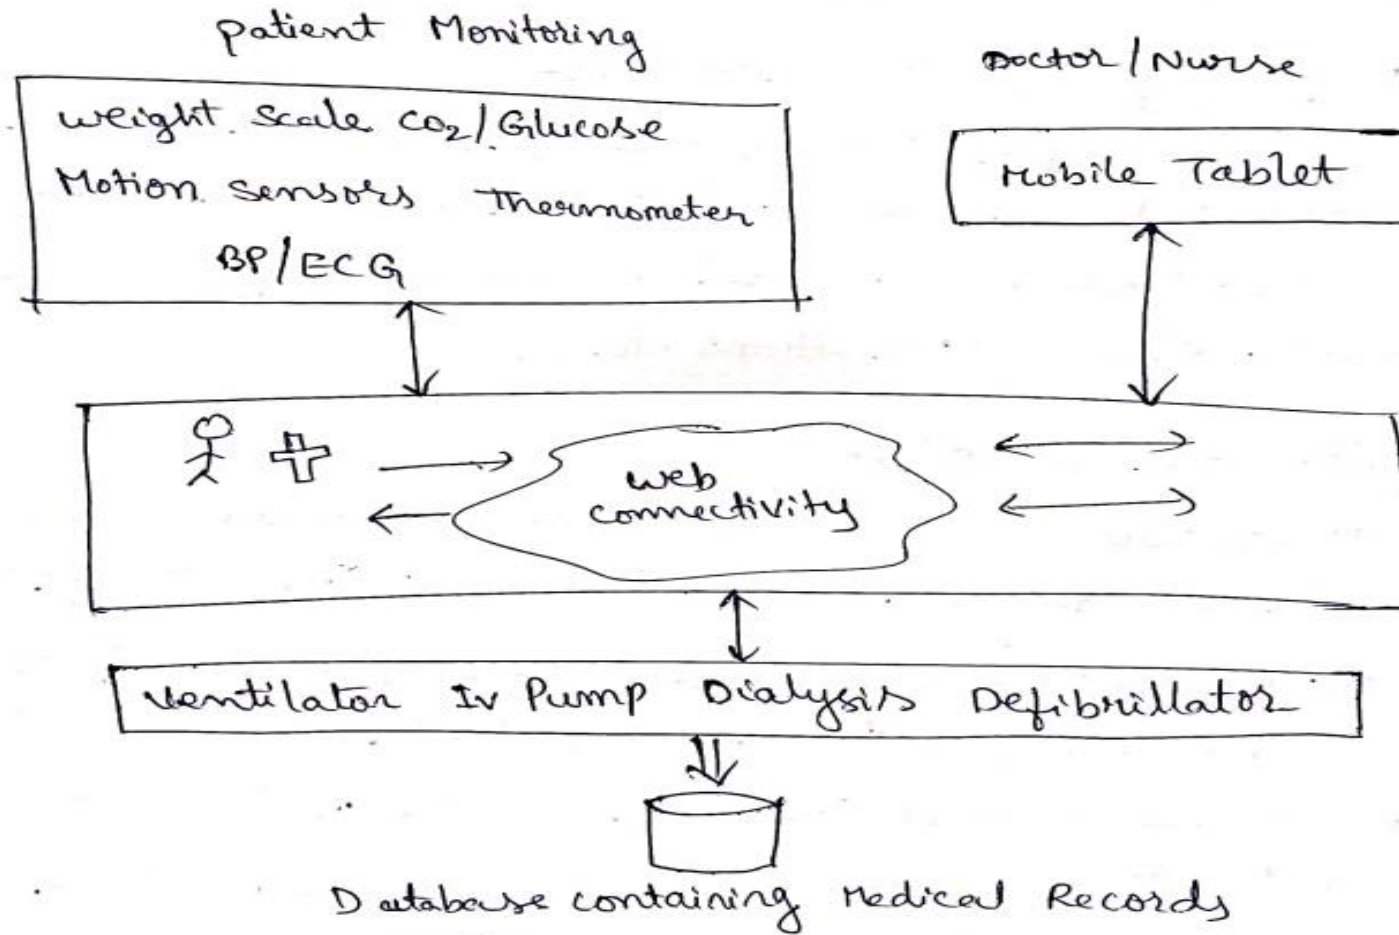 Patient Monitoring
Doctor/Nurse
Weight Scale CO₂/Glucose
Motion Sensors Thermometer
BP/ECG
Mobile Tablet
Web
connectivity
Ventilator IV Pump Dialysis Defibrillator
Database containing Medical Records